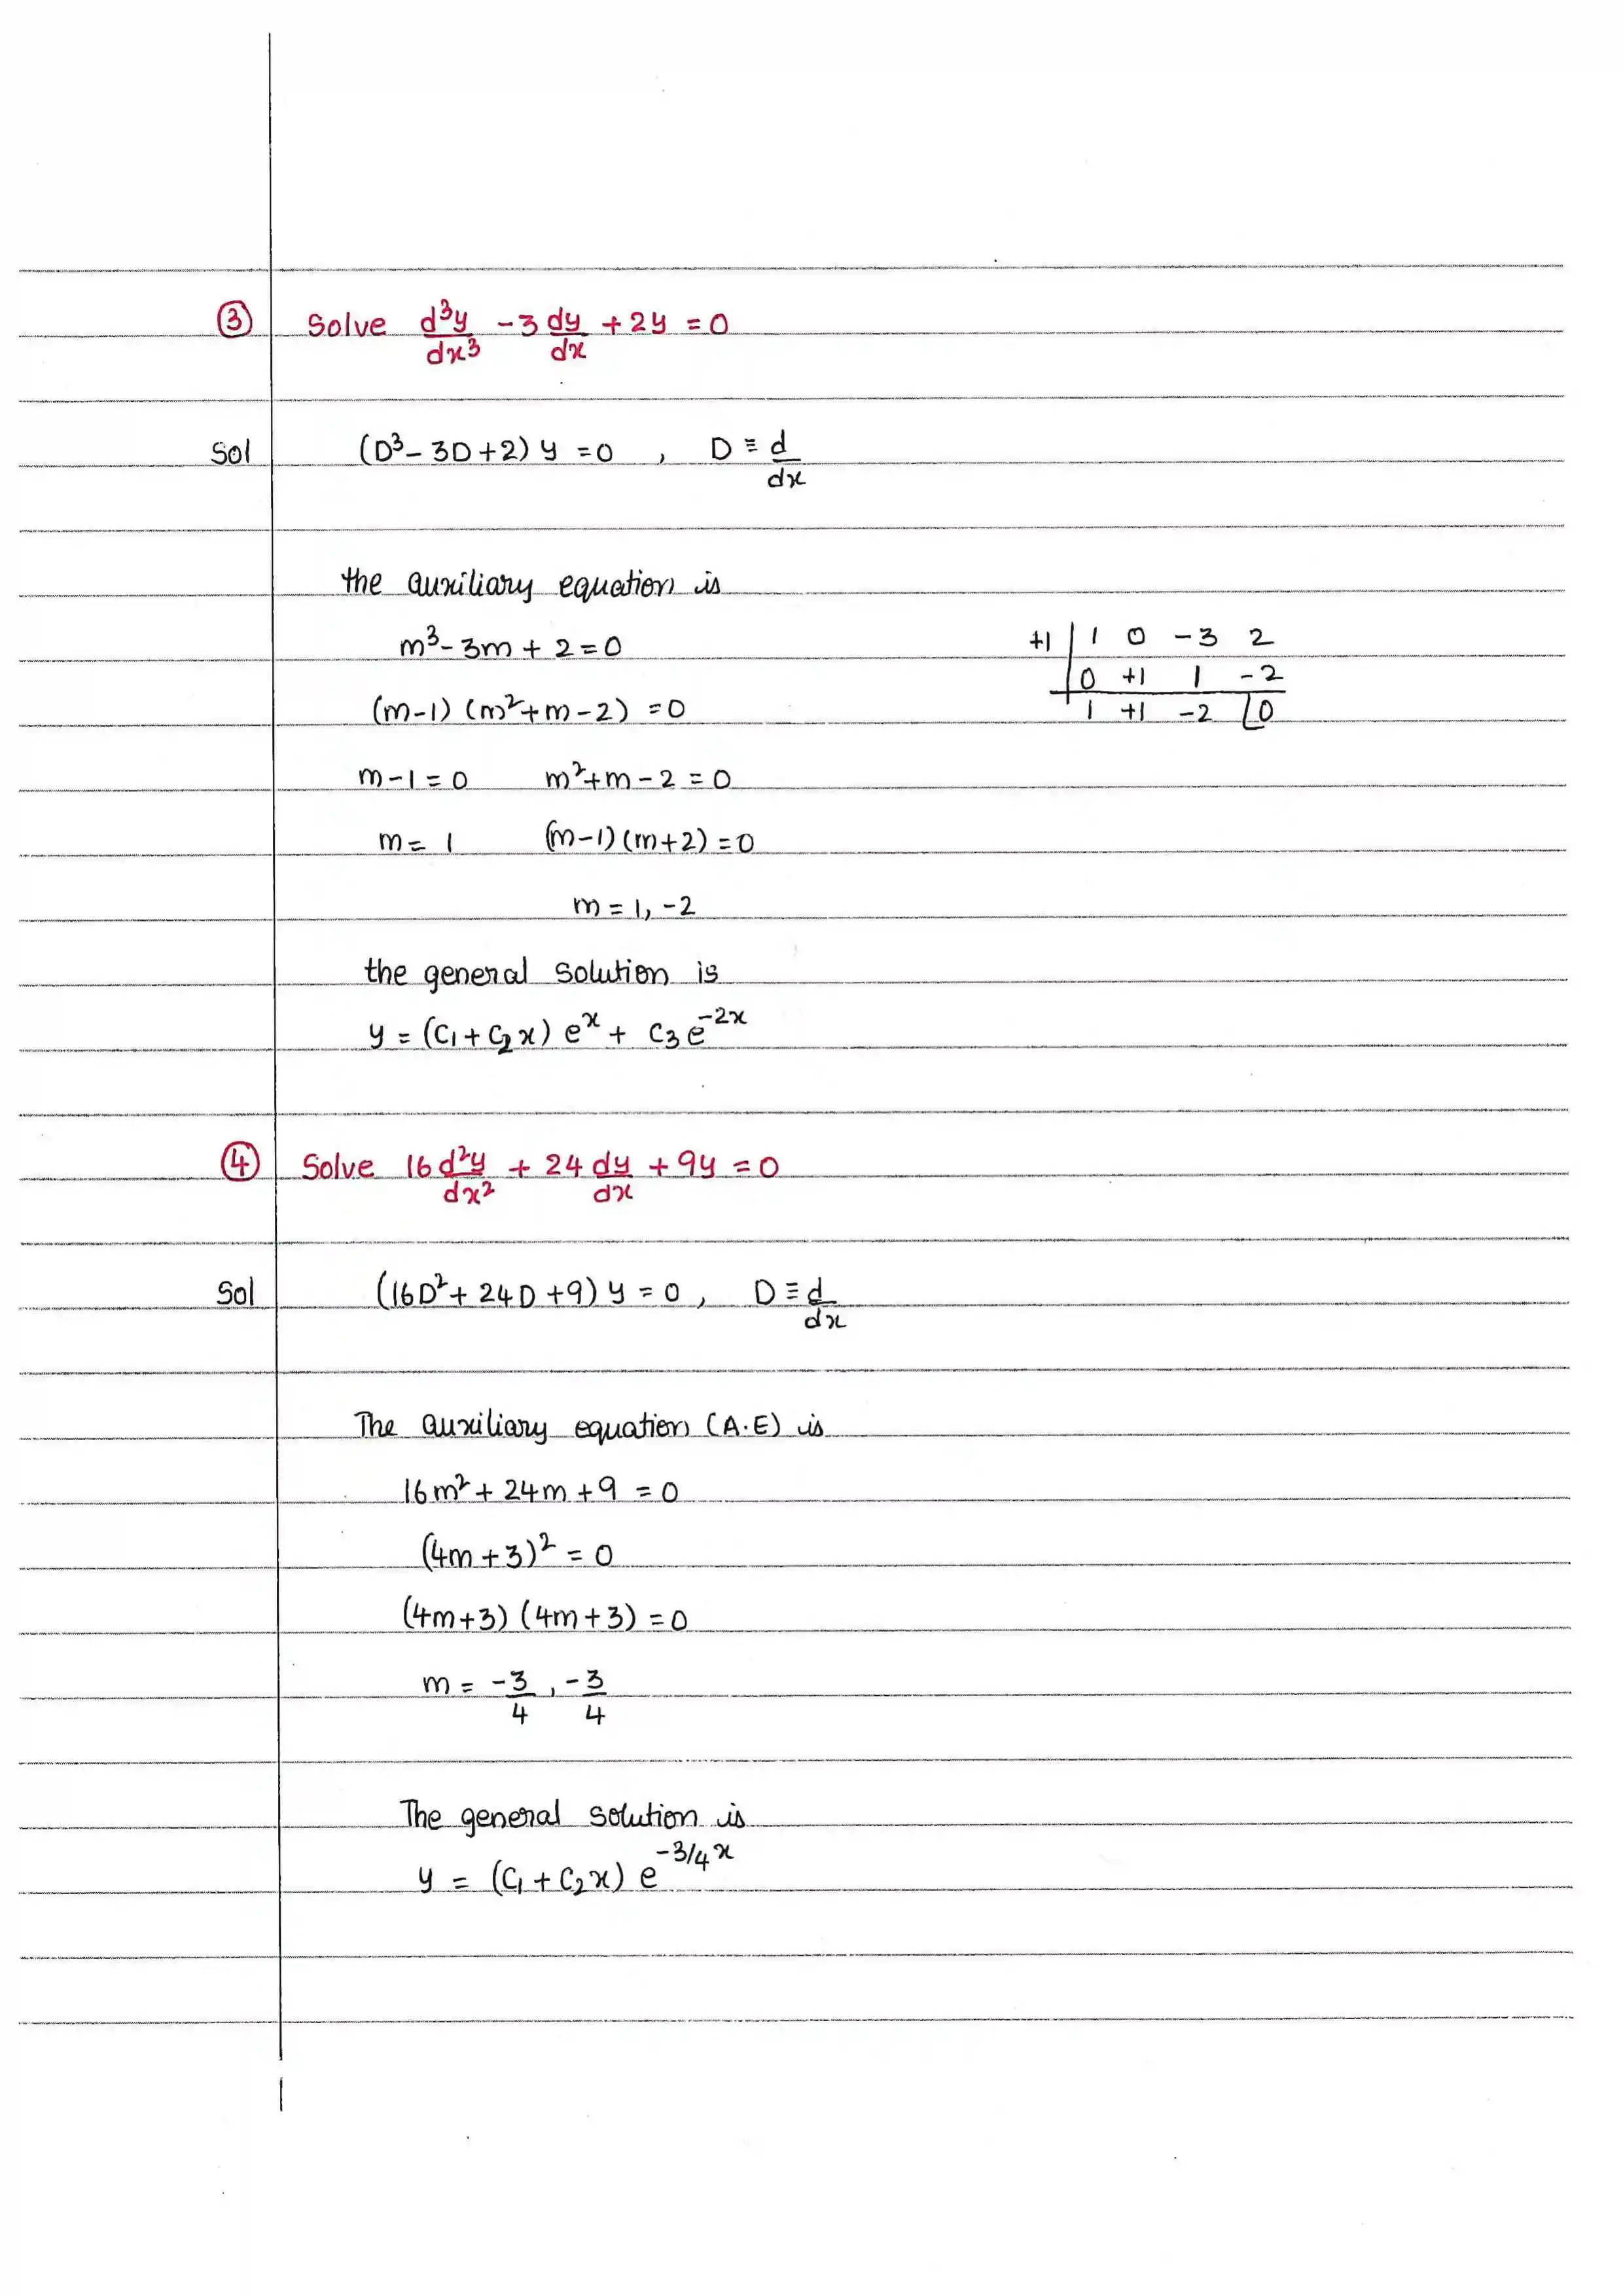 ③ Solve d³y/dx³ - 3 dy/dx + 2y = 0
Sol (D³ - 3D + 2) y = 0 , D ≡ d/dx
the auxiliary equation is
m³ - 3m + 2 = 0
+1 | 1 0 -3 2
0 +1 1 -2
1 +1 -2 | 0
(m-1) (m²+m-2) = 0
m-1 = 0 m²+m-2 = 0
m = 1 (m-1)(m+2) = 0
m = 1, -2
the general solution is
y = (C₁ + C₂x) eˣ + C₃ e⁻²ˣ
④ Solve 16 d²y/dx² + 24 dy/dx + 9y = 0
Sol (16D² + 24D + 9) y = 0 , D ≡ d/dx
The auxiliary equation (A.E) is
16m² + 24m + 9 = 0
(4m + 3)² = 0
(4m+3) (4m+3) = 0
m = -3/4 , -3/4
The general solution is
y = (C₁ + C₂x) e^(-3/4 x)